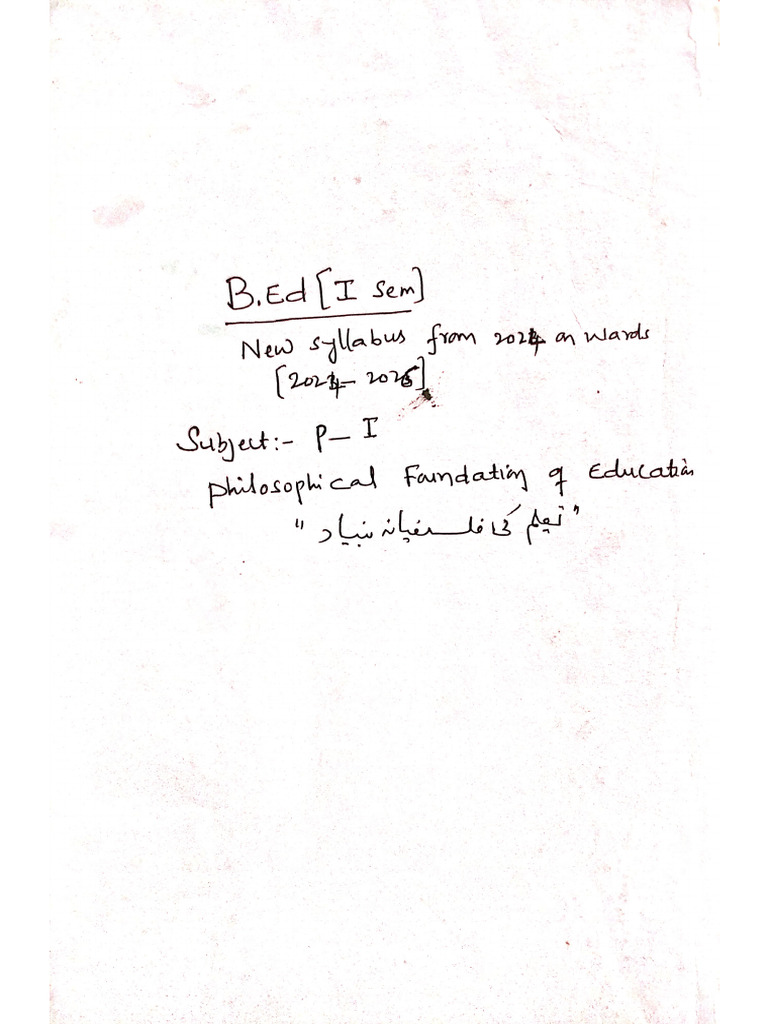 B.Ed [I Sem]
New syllabus from 2024 on wards
[2024-2025]
Subject:- P-I
Philosophical Foundation of Education
"تعلیم کی فلسفیانہ بنیاد"